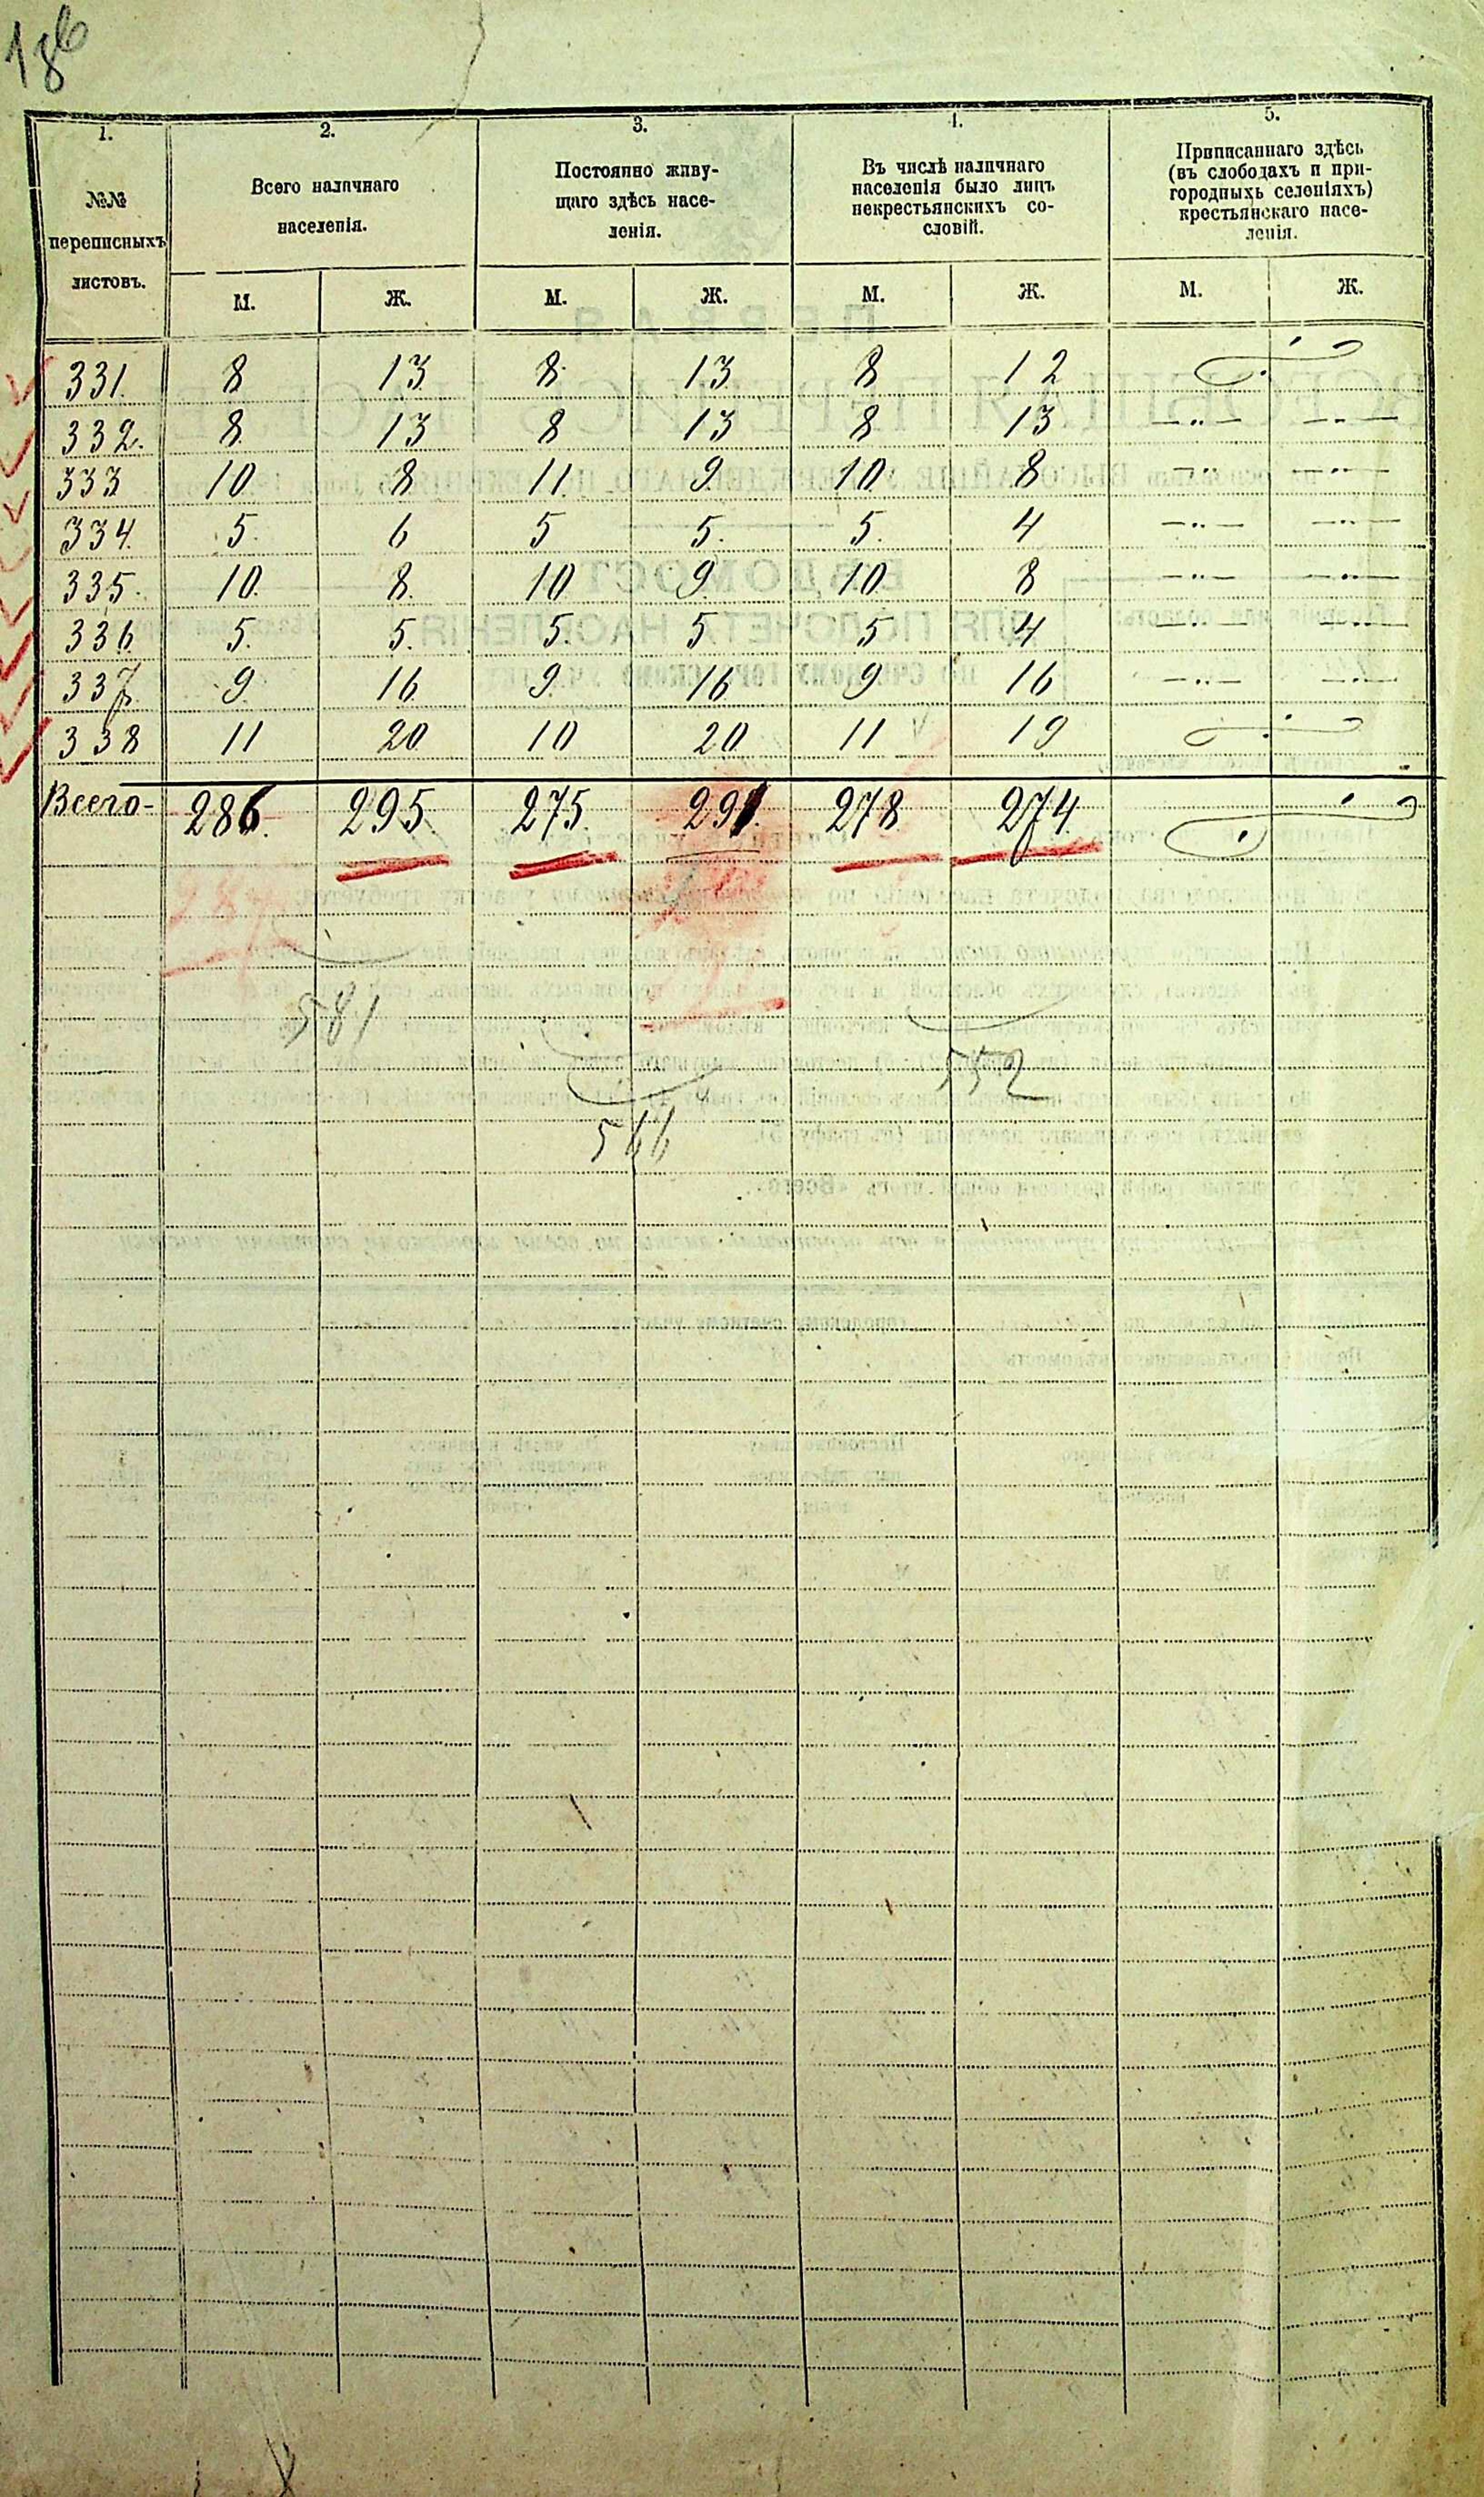 1. 2. 3. 4. 5.
№№
переписныхъ
листовъ.
Всего наличнаго
населенія.
Постоянно живу-
щаго здѣсь насе-
ленія.
Въ числѣ наличнаго
населенія было лицъ
некрестьянскихъ со-
словій.
Приписаннаго здѣсь
(въ слободахъ и при-
городныхъ селеніяхъ)
крестьянскаго насе-
ленія.
М. Ж. М. Ж. М. Ж. М. Ж.
331. 8 13 8 13 8 12
332. 8 13 8 13 8 13 —"— —"—
333 10 8 11 9 10 8 —"— —"—
334. 5 6 5 5 5 4 —"— —"—
335. 10 8 10 9 10 8 —"— —"—
336. 5 5 5 5 5 4 —"— —"—
337 9 16 9 16 9 16 —"— —"—
338 11 20 10 20 11 19
Всего- 286 295 275 291 278 274
581
552
566